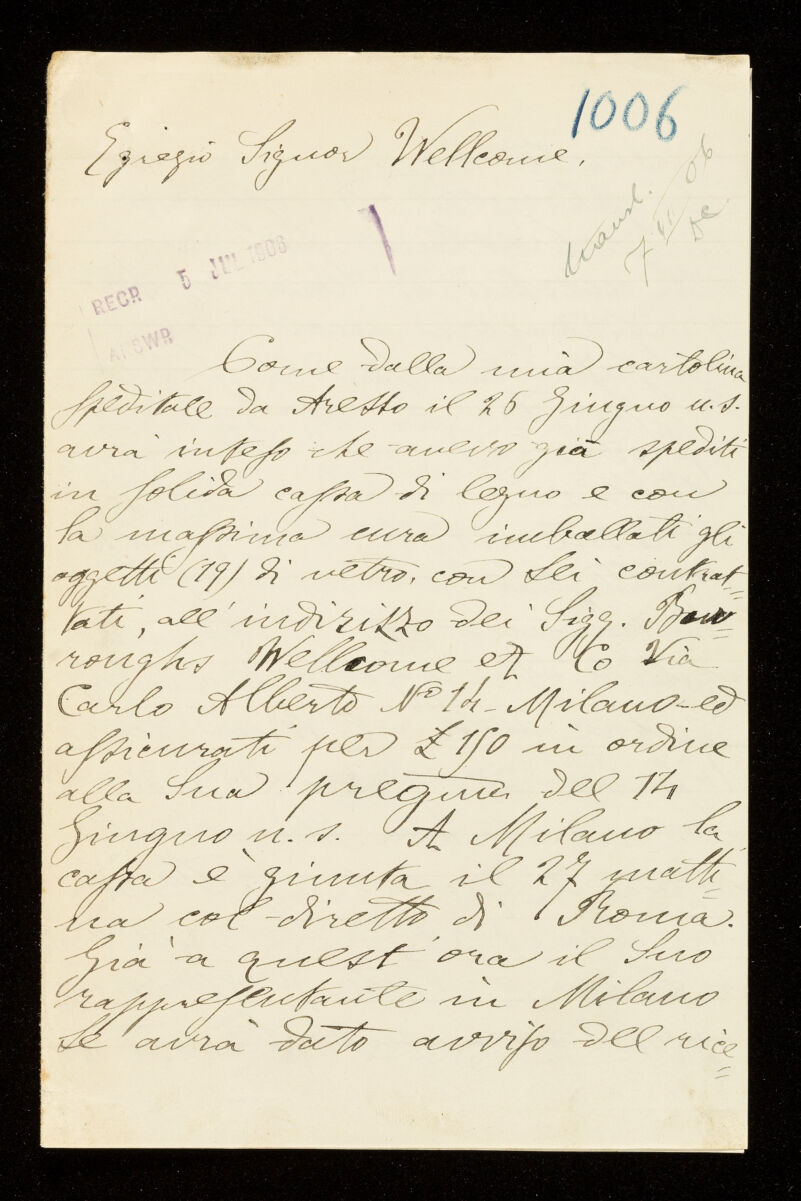 1006
Egregio Signor Wellcome.
transl.
7/VII/06
DC
RECR 5 JUL 1906
ANSWR
Come dalla mia cartolina
speditale da Arezzo il 26 Giugno u.s.
avrà inteso che avevo già spediti
in solida cassa di legno e con
la massima cura imballati gli
oggetti (19) di vetro, con Lei contrat=
tati, all'indirizzo dei Sigg. Bur=
roughs Wellcome et Co Via
Carlo Alberto No 14 - Milano - ed
assicurati per £ 150 in ordine
alla Sua pregma del 14
Giugno u. s. A Milano la
cassa è giunta il 27 matti=
na col diretto di Roma.
Già a quest'ora il Suo
rappresentante in Milano
Le avrà dato avviso del rice=